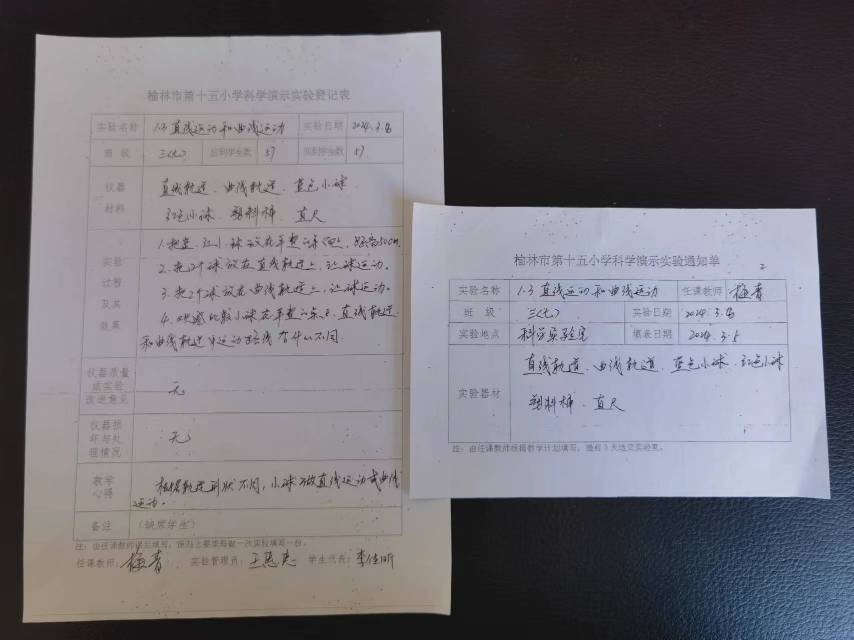 榆林市第十五小学科学演示实验登记表
实验名称 1.3 直线运动和曲线运动 实验日期 2024.3.8
班 级 三(七) 应到学生数 57 实到学生数 57
仪器材料 直线轨道、曲线轨道、蓝色小球
红色小球、塑料桶、直尺
实验过程及其效果 1.把蓝、红小球放在平整的桌面上
2.把2个球放在直线轨道上,让球运动。
3.把2个球放在曲线轨道上,让球运动。
4.观察比较小球在平整的桌上、直线轨道
和曲线轨道中运动路线有什么不同.
仪器质量或实验改进意见 无
仪器损坏与处理情况 无
教学心得 根据轨道形状不同,小球可做直线运动或曲线
运动。
备注 (缺席学生)
注:由任课教师课后填写,原则上要求每做一次实验填写一份。
任课教师: 梅青 实验管理员: 学生代表: 李佳昕
榆林市第十五小学科学演示实验通知单
2
实验名称 1.3 直线运动和曲线运动 任课教师 梅青
班 级 三(七) 实验日期 2024.3.8
实验地点 科学实验室 填表日期 2024.3.5
实验器材 直线轨道、曲线轨道、蓝色小球、红色小球
塑料桶、直尺
注:由任课教师根据教学计划填写,提前3天送交实验室。